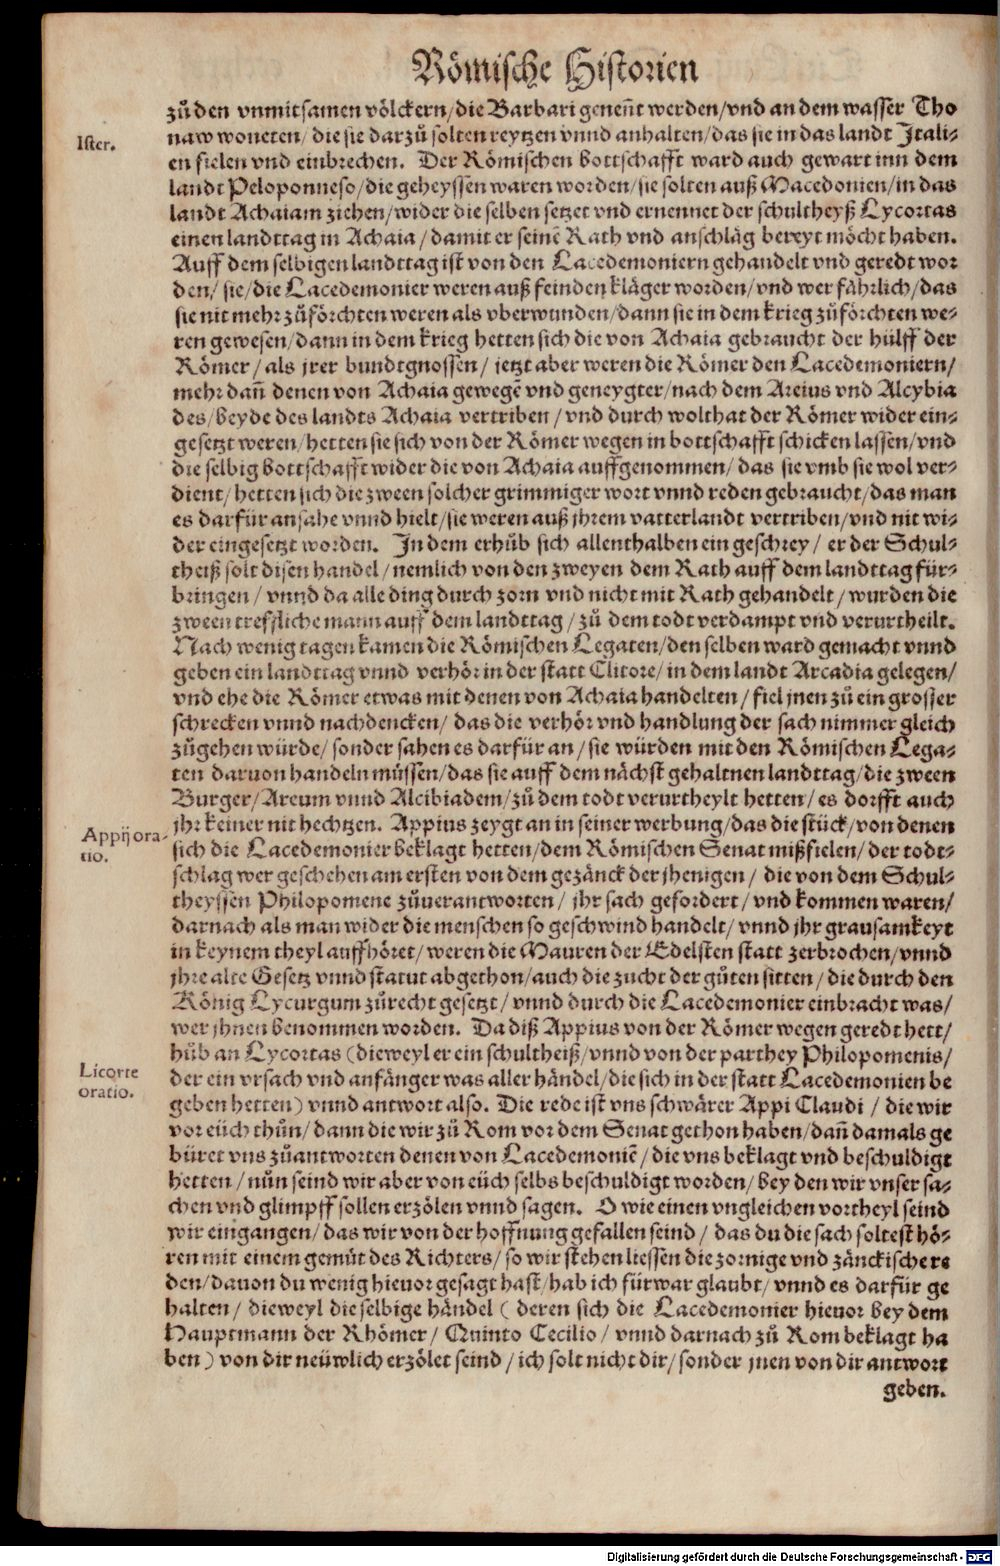 Römische Historien
zů den vnmitsamen völckern/die Barbari geneñt werden/vnd an dem wasser Tho
Ister.
naw woneten/die sie darzů solten reytzen vnnd anhalten/das sie in das landt Itali-
en fielen vnd einbrechen. Der Römischen bottschafft ward auch gewart inn dem
landt Peloponneso/die geheyssen waren worden/sie solten auß Macedonien/in das
landt Achaiam ziehen/wider die selben setzet vnd ernennet der schultheyß Lycortas
einen landttag in Achaia/damit er seinē Rath vnd anschläg bereyt möcht haben.
Auff dem selbigen landttag ist von den Lacedemoniern gehandelt vnd geredt wor
den/sie/die Lacedemonier weren auß feinden kläger worden/vnd wer fährlich/das
sie nit mehr zůförchten weren als vberwunden/dann sie in dem krieg zůförchten we-
ren gewesen/dann in dem krieg hetten sich die von Achaia gebraucht der hülff der
Römer/als jrer bundtgnossen/jetzt aber weren die Römer den Lacedemoniern/
mehr dañ denen von Achaia gewegē vnd geneygter/nach dem Areius vnd Alcybia
des/beyde des landts Achaia vertriben/vnd durch wolthat der Römer wider ein-
gesetzt weren/hetten sie sich von der Römer wegen in bottschafft schicken lassen/vnd
die selbig bottschafft wider die von Achaia auffgenommen/das sie vmb sie wol ver-
dient/hetten sich die zween solcher grimmiger wort vnnd reden gebraucht/das man
es darfür ansahe vnnd hielt/sie weren auß jhrem vatterlandt vertriben/vnd nit wi-
der eingesetzt worden. In dem erhůb sich allenthalben ein geschrey/er der Schul-
theiß solt disen handel/nemlich von den zweyen dem Rath auff dem landttag für-
bringen/vnnd da alle ding durch zorn vnd nicht mit Rath gehandelt/wurden die
zween treffliche mann auff dem landttag/zů dem todt verdampt vnd verurtheilt.
Nach wenig tagen kamen die Römischen Legaten/den selben ward gemacht vnnd
geben ein landttag vnnd verhör in der statt Clitore/in dem landt Arcadia gelegen/
vnd ehe die Römer etwas mit denen von Achaia handelten/fiel jnen zů ein grosser
schrecken vnnd nachdencken/das die verhör vnd handlung der sach nimmer gleich
zůgehen würde/sonder sahen es darfür an/sie würden mit den Römischen Lega-
ten daruon handeln müssen/das sie auff dem nächst gehaltnen landttag/die zween
Burger/Areum vnnd Alcibiadem/zů dem todt verurtheylt hetten/es dorfft auch
jhr keiner nit hechtzen. Appius zeygt an in seiner werbung/das die stück/von denen
Appij ora-
tio.
sich die Lacedemonier beklagt hetten/dem Römischen Senat mißfielen/der todt-
schlag wer geschehen am ersten von dem gezänck der jhenigen/die von dem Schul-
theyssen Philopomene zůuerantworten/jhr sach gefordert/vnd kommen waren/
darnach als man wider die menschen so geschwind handelt/vnnd jhr grausamkeyt
in keynem theyl auffhöret/weren die Mauren der Edelsten statt zerbrochen/vnnd
jhre alte Gesetz vnnd statut abgethon/auch die zucht der gůten sitten/die durch den
König Lycurgum zůrecht gesetzt/vnnd durch die Lacedemonier einbracht was/
wer jhnen benommen worden. Da diß Appius von der Römer wegen geredt hett/
hůb an Lycortas (dieweyl er ein schultheiß/vnnd von der parthey Philopomenis/
Licorte
oratio.
der ein vrsach vnd anfänger was aller händel/die sich in der statt Lacedemonien be
geben hetten) vnnd antwort also. Die rede ist vns schwärer Appi Claudi/die wir
vor eüch thůn/dann die wir zů Rom vor dem Senat gethon haben/dañ damals ge
büret vns zůantworten denen von Lacedemoniē/die vns beklagt vnd beschuldigt
hetten/nůn seind wir aber von eüch selbs beschuldigt worden/bey den wir vnser sa-
chen vnd glimpff sollen erzölen vnnd sagen. O wie einen vngleichen vortheyl seind
wir eingangen/das wir von der hoffnung gefallen seind/das du die sach soltest hö-
ren mit einem gemüt des Richters/so wir stehen liessen die zornige vnd zänckische re
den/dauon du wenig hieuor gesagt hast/hab ich fürwar glaubt/vnnd es darfür ge
halten/dieweyl die selbige händel (deren sich die Lacedemonier hieuor bey dem
Hauptmann der Rhömer/Quinto Cecilio/vnnd darnach zů Rom beklagt ha
ben) von dir neüwlich erzölet seind/ich solt nicht dir/sonder jnen von dir antwort
geben.
Digitalisierung gefördert durch die Deutsche Forschungsgemeinschaft - DFG